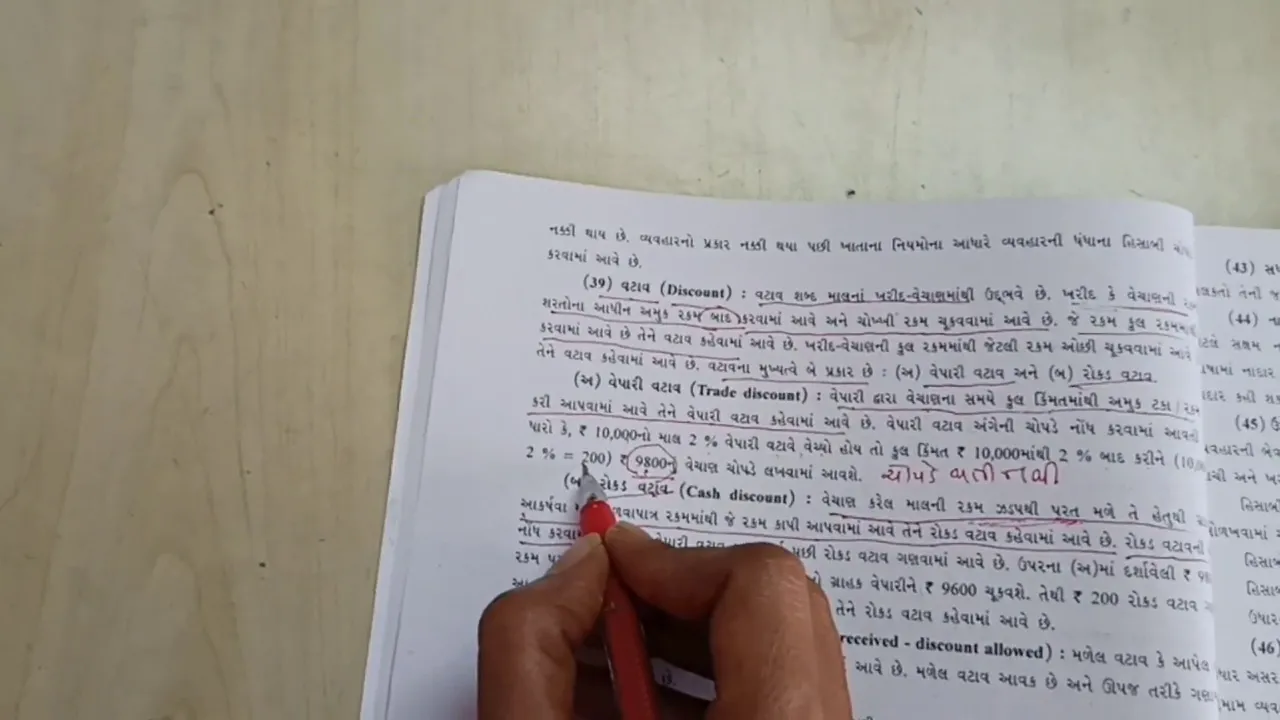 નક્કી થાય છે. વ્યવહારનો પ્રકાર નક્કી થયા પછી ખાતાના નિયમોના આધારે વ્યવહારની ધંધાના હિસાબી
કરવામાં આવે છે.
(39) વટાવ (Discount) : વટાવ શબ્દ માલનાં ખરીદ-વેચાણમાંથી ઉદ્ભવે છે. ખરીદ કે વેચાણની
શરતોના આધીન અમુક રકમ બાદ કરવામાં આવે અને ચોખ્ખી રકમ ચૂકવવામાં આવે છે. જે રકમ કુલ રકમમાંથી
કરવામાં આવે છે તેને વટાવ કહેવામાં આવે છે. ખરીદ-વેચાણની કુલ રકમમાંથી જેટલી રકમ ઓછી ચૂકવવામાં આવે
તેને વટાવ કહેવામાં આવે છે. વટાવના મુખ્યત્વે બે પ્રકાર છે : (અ) વેપારી વટાવ અને (બ) રોકડ વટાવ
(અ) વેપારી વટાવ (Trade discount) : વેપારી દ્વારા વેચાણના સમયે કુલ કિંમતમાંથી અમુક ટકા/રકમ
કરી આપવામાં આવે તેને વેપારી વટાવ કહેવામાં આવે છે. વેપારી વટાવ અંગેની ચોપડે નોંધ કરવામાં આવતી
ધારો કે, ₹ 10,000નો માલ 2 % વેપારી વટાવે વેચ્યો હોય તો કુલ કિંમત ₹ 10,000માંથી 2 % બાદ કરીને (10,0
2 % = 200) ₹ 9800નું વેચાણ ચોપડે લખવામાં આવશે. ચોપડે થતી નથી
(બ) રોકડ વટાવ (Cash discount) : વેચાણ કરેલ માલની રકમ ઝડપથી પરત મળે તે હેતુથી
આકર્ષવા રકમમાંથી જે રકમ કાપી આપવામાં આવે તેને રોકડ વટાવ કહેવામાં આવે છે. રોકડ વટાવની
નોંધ વેપારી વટાવ પછી રોકડ વટાવ ગણવામાં આવે છે. ઉપરના (અ)માં દર્શાવેલી ₹ 98
રકમ ગ્રાહક વેપારીને ₹ 9600 ચૂકવશે. તેથી ₹ 200 રોકડ વટાવ
તેને રોકડ વટાવ કહેવામાં આવે છે.
received - discount allowed) : મળેલ વટાવ કે આપેલ
આવે છે. મળેલ વટાવ આવક છે અને ઊપજ તરીકે
છે.
(43)
(44)
(45)
(46)